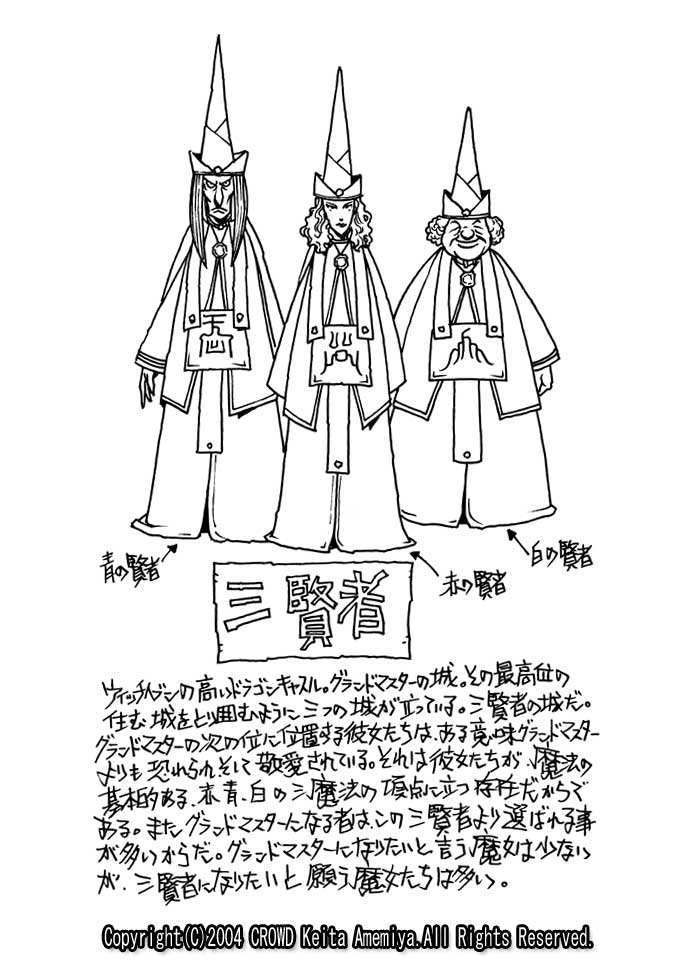 青の賢者
赤の賢者
白の賢者
三賢者
ウィッチヘブンの高いドラゴンキャッスル。グランドマスターの城。その最高位の
住む城をとり囲むように三つの城が立っている。三賢者の城だ。
グランドマスターの次の位に位置する彼女たちは、ある意味グランドマスター
よりも恐れられそして敬愛されている。それは彼女たちが、魔法の
基本的ある、赤、青、白の三魔法の頂点に立つ存在だからで
ある。またグランドマスターになる者は、この三賢者より選ばれる事
が多いからだ。グランドマスターになりたいと言う魔女は少ない
が、三賢者になりたいと願う魔女たちは多い。
Copyright(C)2004 CROWD Keita Amemiya.All Rights Reserved.